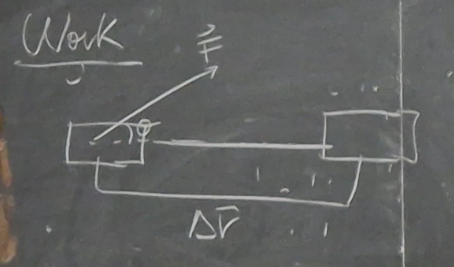 Work
F⃗
φ
Δr⃗